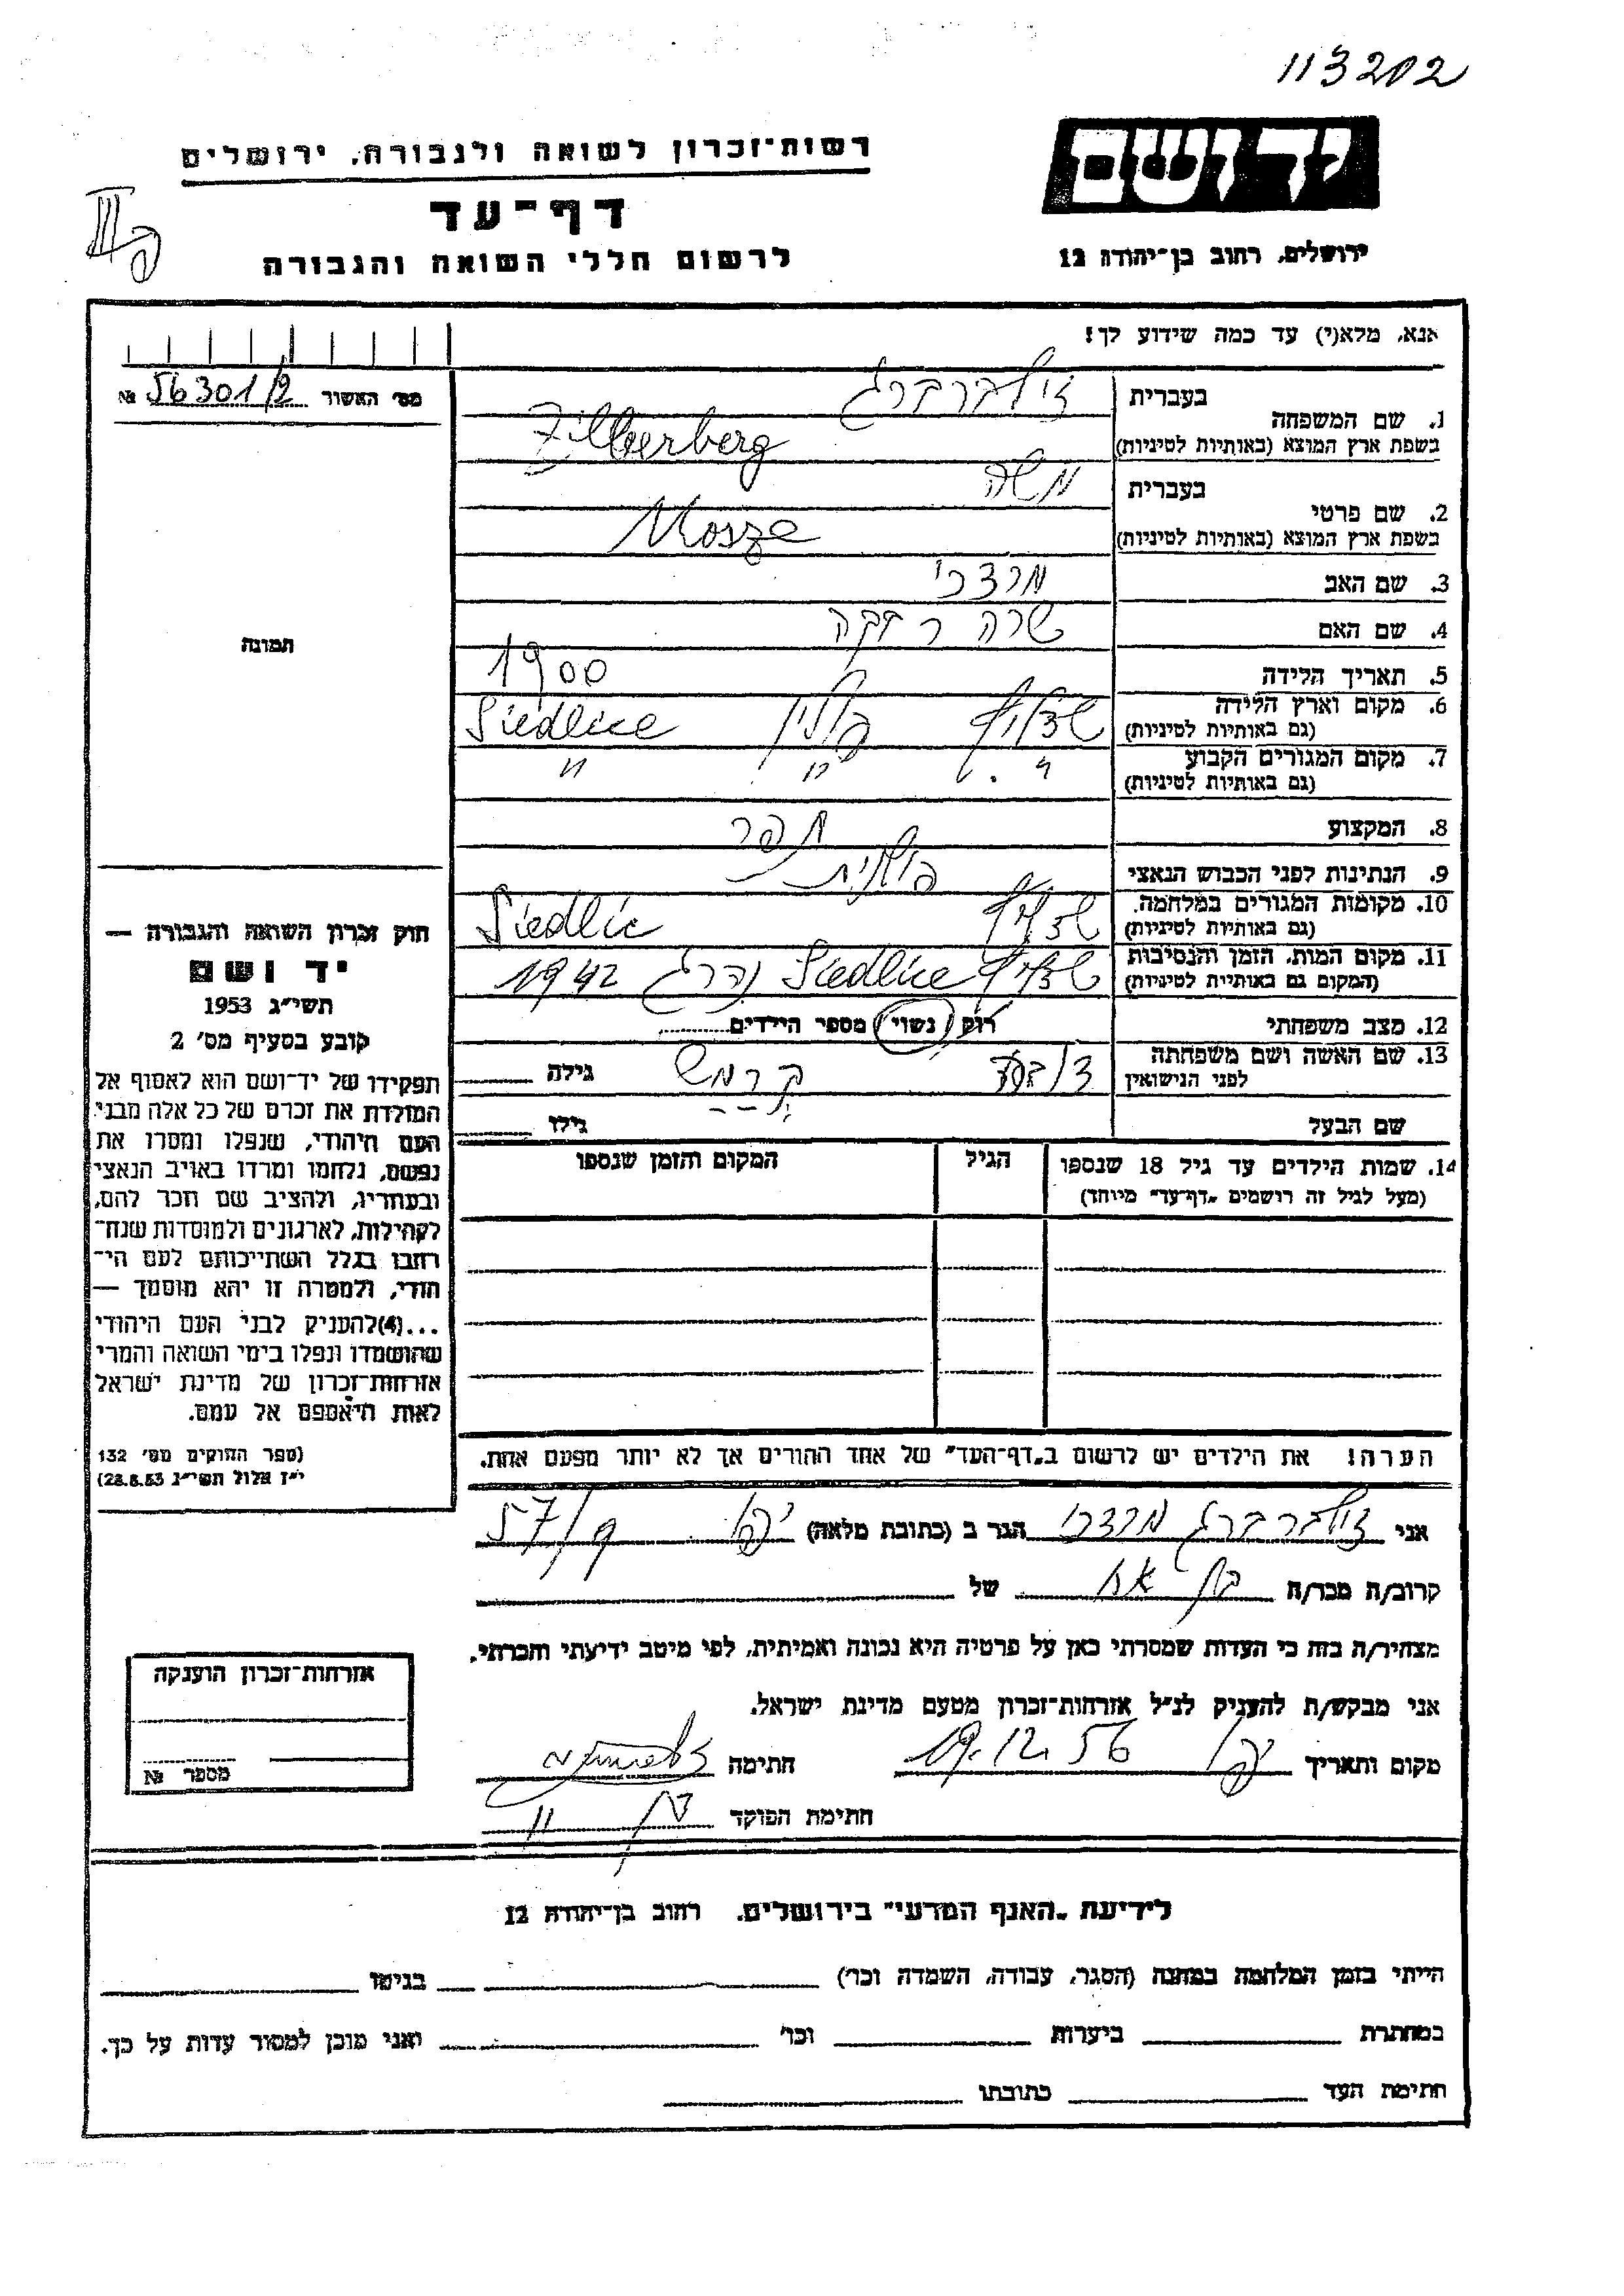 113202
יד ושם
ירושלים, רחוב בן־יהודה 12
רשות־זכרון לשואה ולגבורה, ירושלים
דף־עד
לרשום חללי השואה והגבורה
אנא, מלא(י) עד כמה שידוע לך!
מס׳ האשור 56301/2 №
1. שם המשפחה
בעברית זילברברג
בשפת ארץ המוצא (באותיות לטיניות) Zilberberg
2. שם פרטי
בעברית משה
בשפת ארץ המוצא (באותיות לטיניות) Mosze
3. שם האב מרדכי
4. שם האם שרה רבקה
5. תאריך הלידה 1900
6. מקום וארץ הלידה
(גם באותיות לטיניות) שדליץ פולין Siedlice
7. מקום המגורים הקבוע
(גם באותיות לטיניות) " " "
8. המקצוע תפר
9. הנתינות לפני הכבוש הנאצי פולנית
10. מקומות המגורים במלחמה.
(גם באותיות לטיניות) שדליץ Siedlic
11. מקום המות, הזמן והנסיבות
(המקום גם באותיות לטיניות) שדליץ Siedlice נהרג 1942
12. מצב משפחתי רווק נשוי מספר הילדים
13. שם האשה ושם משפחתה
לפני הנישואין גילה
שם הבעל גילו
14. שמות הילדים עד גיל 18 שנספו
(מעל לגיל זה רושמים „דף־עד” מיוחד)
הגיל
המקום והזמן שנספו
הערה! את הילדים יש לרשום ב„דף־העד” של אחד ההורים אך לא יותר מפעם אחת.
תמונה
חוק זכרון השואה והגבורה —
יד ושם
תשי״ג 1953
קובע בסעיף מס׳ 2
תפקידו של יד־ושם הוא לאסוף אל
המולדת את זכרם של כל אלה מבני
העם היהודי, שנפלו ומסרו את
נפשם, נלחמו ומרדו באויב הנאצי
ובעוזריו, ולהציב שם וזכר להם,
לקהילות, לארגונים ולמוסדות שנח־
רבו בגלל השתייכותם לעם הי־
הודי, ולמטרה זו יהא מוסמך —
...(4)להעניק לבני העם היהודי
שהושמדו ונפלו בימי השואה והמרי
אזרחות־זכרון של מדינת ישראל
לאות היאספם אל עמם.
(ספר החוקים מס׳ 132
י״ז אלול תשי״ג 28.8.53)
אני זילברברג מרדכי הגר ב (כתובת מלאה) יפו 57/
קרוב/ה מכר/ה בן אח של
מצהיר/ה בזה כי העדות שמסרתי כאן על פרטיה היא נכונה ואמיתית, לפי מיטב ידיעתי והכרתי.
אני מבקש/ת להעניק לנ״ל אזרחות־זכרון מטעם מדינת ישראל.
מקום ותאריך יפו 19.12.56 חתימה
חתימת הפוקד
אזרחות־זכרון הוענקה
מספר №
לידיעת „האגף המדעי” בירושלים, רחוב בן־יהודה 12
הייתי בזמן המלחמה במחנה (הסגר, עבודה, השמדה וכו׳) בגיטו
במחתרת ביערות וכו׳ ואני מוכן למסור עדות על כך.
חתימת העד כתובתו